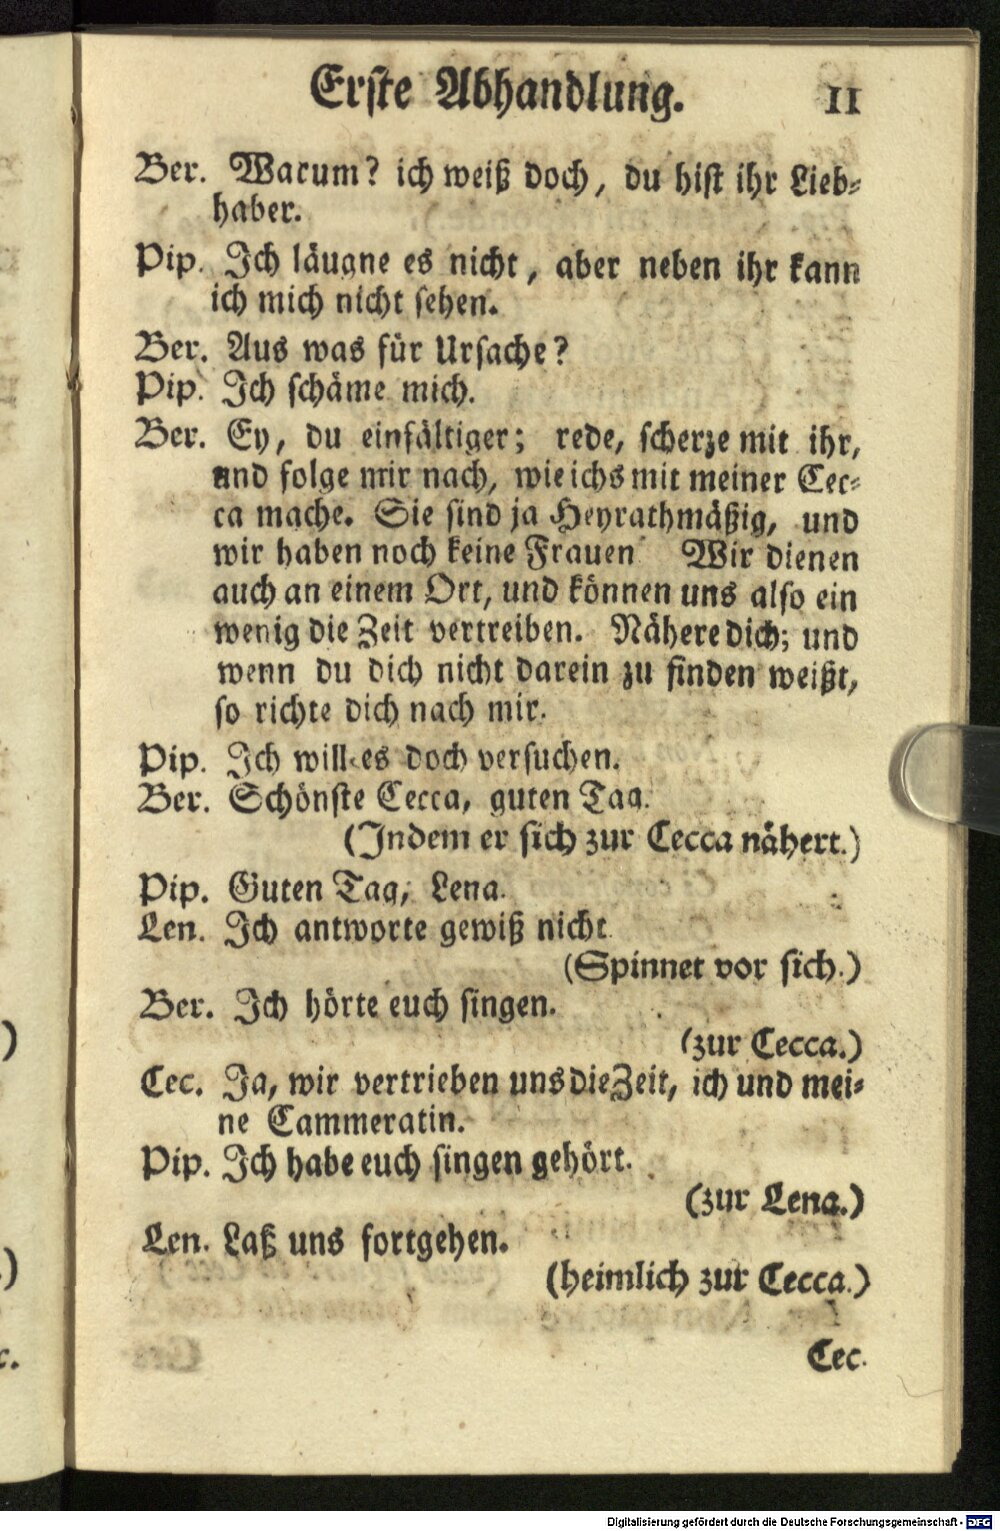 Erste Abhandlung. 11
Ber. Warum? ich weiß doch, du bist ihr Lieb-
haber.
Pip. Ich läugne es nicht, aber neben ihr kann
ich mich nicht sehen.
Ber. Aus was für Ursache?
Pip. Ich schäme mich.
Ber. Ey, du einfältiger; rede, scherze mit ihr,
und folge mir nach, wie ichs mit meiner Cec-
ca mache. Sie sind ja Heyrathmäßig, und
wir haben noch keine Frauen Wir dienen
auch an einem Ort, und können uns also ein
wenig die Zeit vertreiben. Nähere dich; und
wenn du dich nicht darein zu finden weißt,
so richte dich nach mir.
Pip. Ich will es doch versuchen.
Ber. Schönste Cecca, guten Tag.
(Indem er sich zur Cecca nähert.)
Pip. Guten Tag, Lena.
Len. Ich antworte gewiß nicht
(Spinnet vor sich.)
Ber. Ich hörte euch singen.
(zur Cecca.)
Cec. Ja, wir vertrieben uns die Zeit, ich und mei-
ne Cammeratin.
Pip. Ich habe euch singen gehört.
(zur Lena.)
Len. Laß uns fortgehen.
(heimlich zur Cecca.)
Cec.
Digitalisierung gefördert durch die Deutsche Forschungsgemeinschaft - DFG